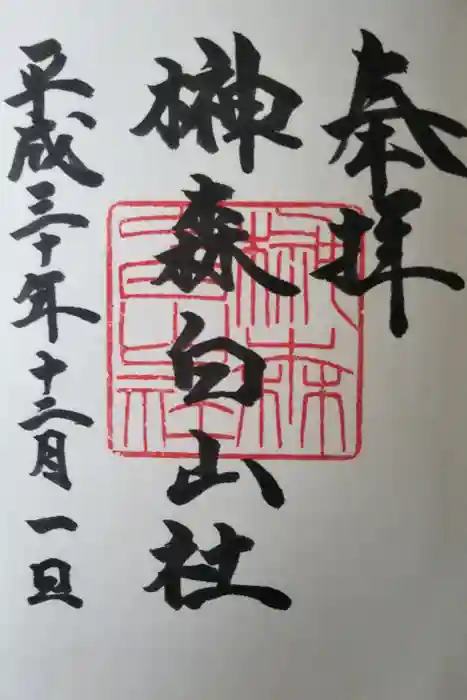 奉拝
榊森白山社
平成三十年十二月一日